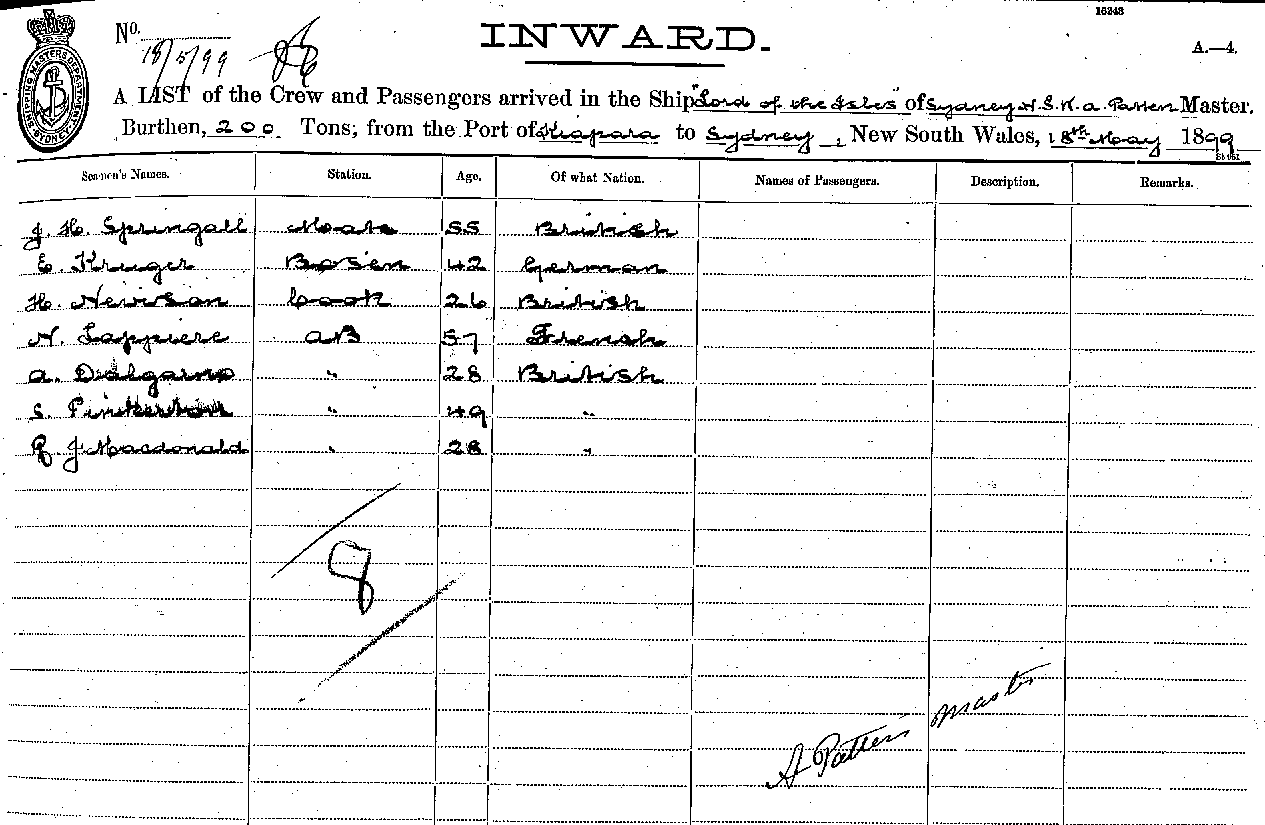 16243
No.
18/5/99
INWARD.
A.—4.
SHIPPING MASTERS DEPARTMENT SYDNEY
A LIST of the Crew and Passengers arrived in the Ship "Lord of the Isles" of Sydney N.S.W. A. Patten Master.
Burthen, 200 Tons; from the Port of Kiapara to Sydney, New South Wales, 18th May 1899
Seamen's Names. Station. Age. Of what Nation. Names of Passengers. Description. Remarks.
J. H. Springall Mate 55 British
E. Kruger Bosen 42 German
H. Newson Cook 26 British
N. Lappiere AB 57 French
A. Dalgarno " 28 British
S. Pinkerton " 49 "
J Macdonald " 28 "
8
A Patten Master